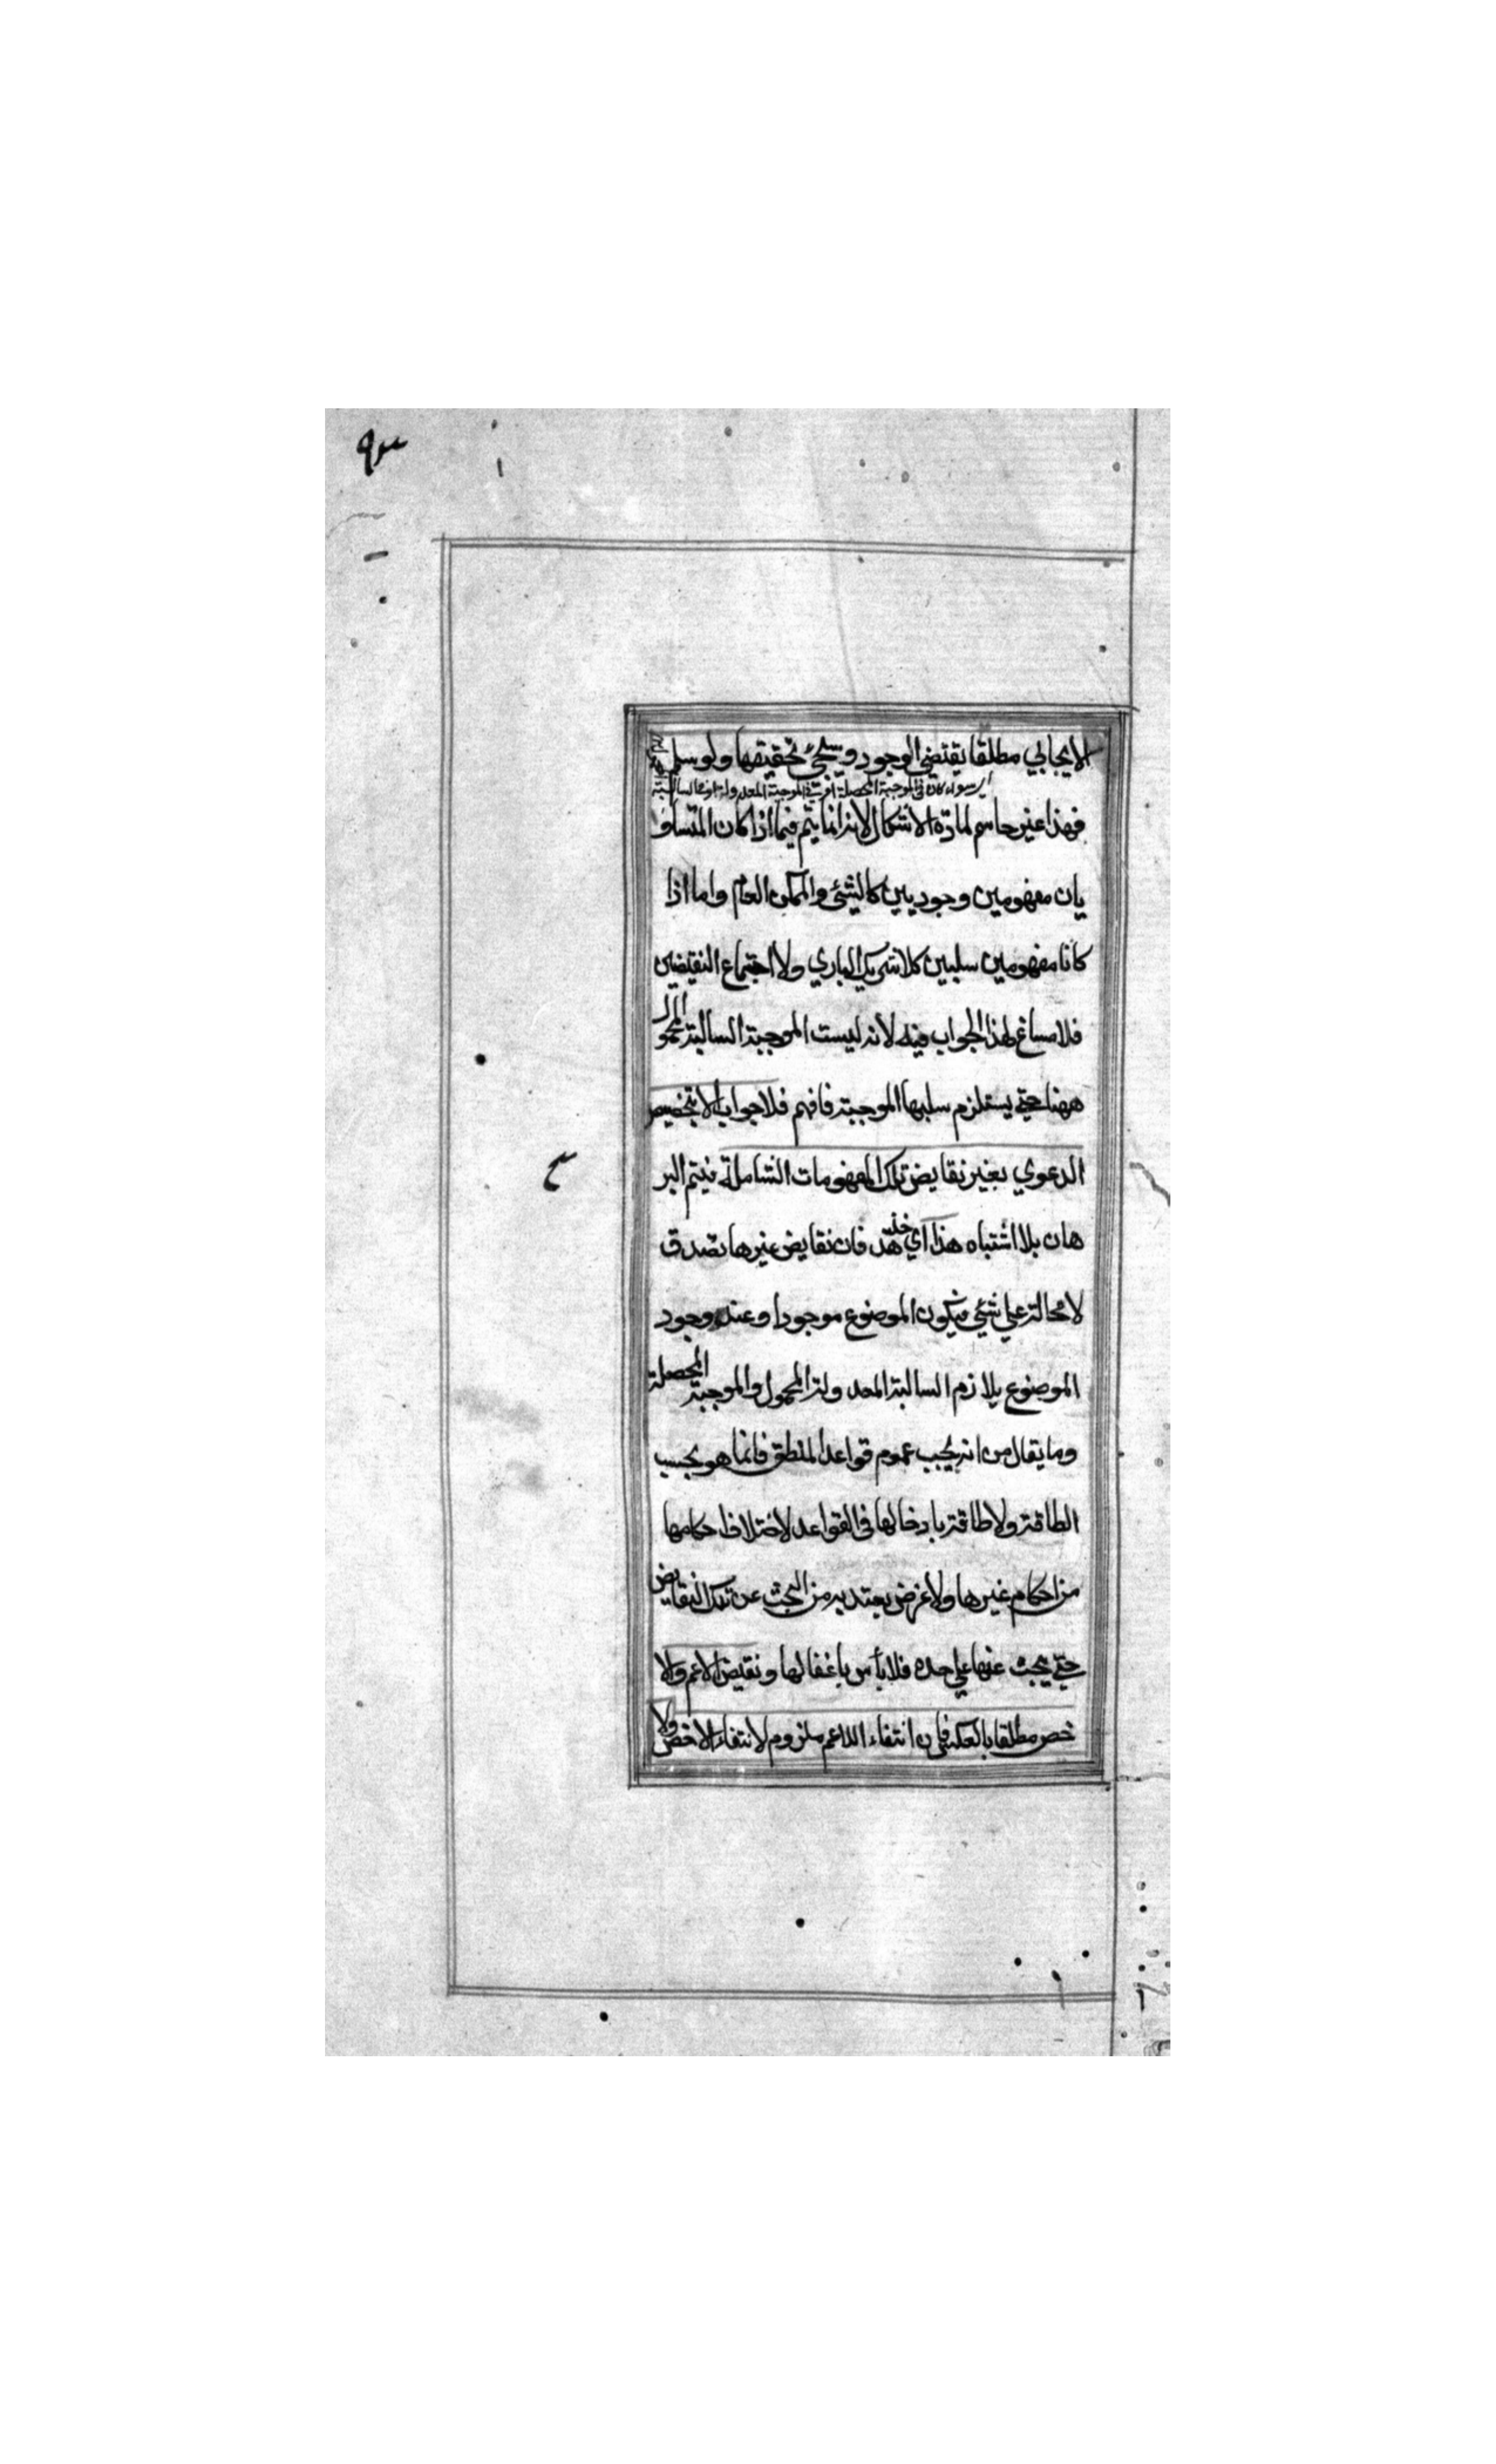 ٩٣
الايجابي مطلقا يقتضي الوجود وسيجئ تحقيقها ولو سلم
اي سواء كان في الموجبة المحصلة او في الموجبة المعدولة او في السالبة
فهذا غير حاسم لمادة الاشكال لانه انما يتم فيما اذا كان المتساو
يان مفهومين وجوديين كالشئ والممكن العام واما اذا
كانا مفهومين سلبيين كلا شريك الباري ولا اجتماع النقيضين
فلا مساغ لهذا الجواب فيه لانه ليست الموجبة السالبة المحمول
ههنا حتي يستلزم سلبها الموجبة فافهم فلا جواب الا بتخصيص
الدعوي بغير نقايض تلك المفهومات الشاملة فيتم البر
هان بلا اشتباه هذا اي خذ هذا فان نقايض غيرها تصدق
لا محالة علي شئي فيكون الموضوع موجودا وعند وجود
الموضوع يلازم السالبة المعدولة المحمول والموجبة المحصلة
وما يقال من انه يجب عموم قواعد المنطق فانما هو بحسب
الطاقة ولا طاقة بادخالها في القواعد لاختلاف احكامها
من احكام غيرها ولا غرض يعتد به من البحث عن تلك النقايض
حتي يبحث عنها علي حده فلا بأس باغفالها ونقيض الاعم والا
خص مطلقا بالعكس فان انتفاء الاعم ملزوم لانتفاء الاخص ولا